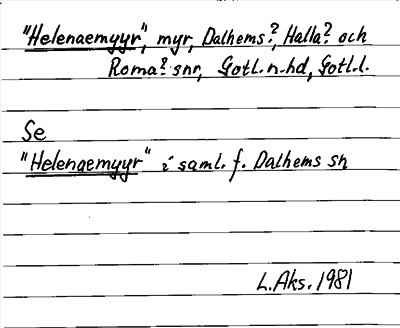 "Helenaemyyr", myr, Dalhems?, Halla? och
Roma? snr, Gotl. n. hd, Gotl. l.
Se
"Helenaemyyr" i saml. f. Dalhems sn
L. Aks. 1981